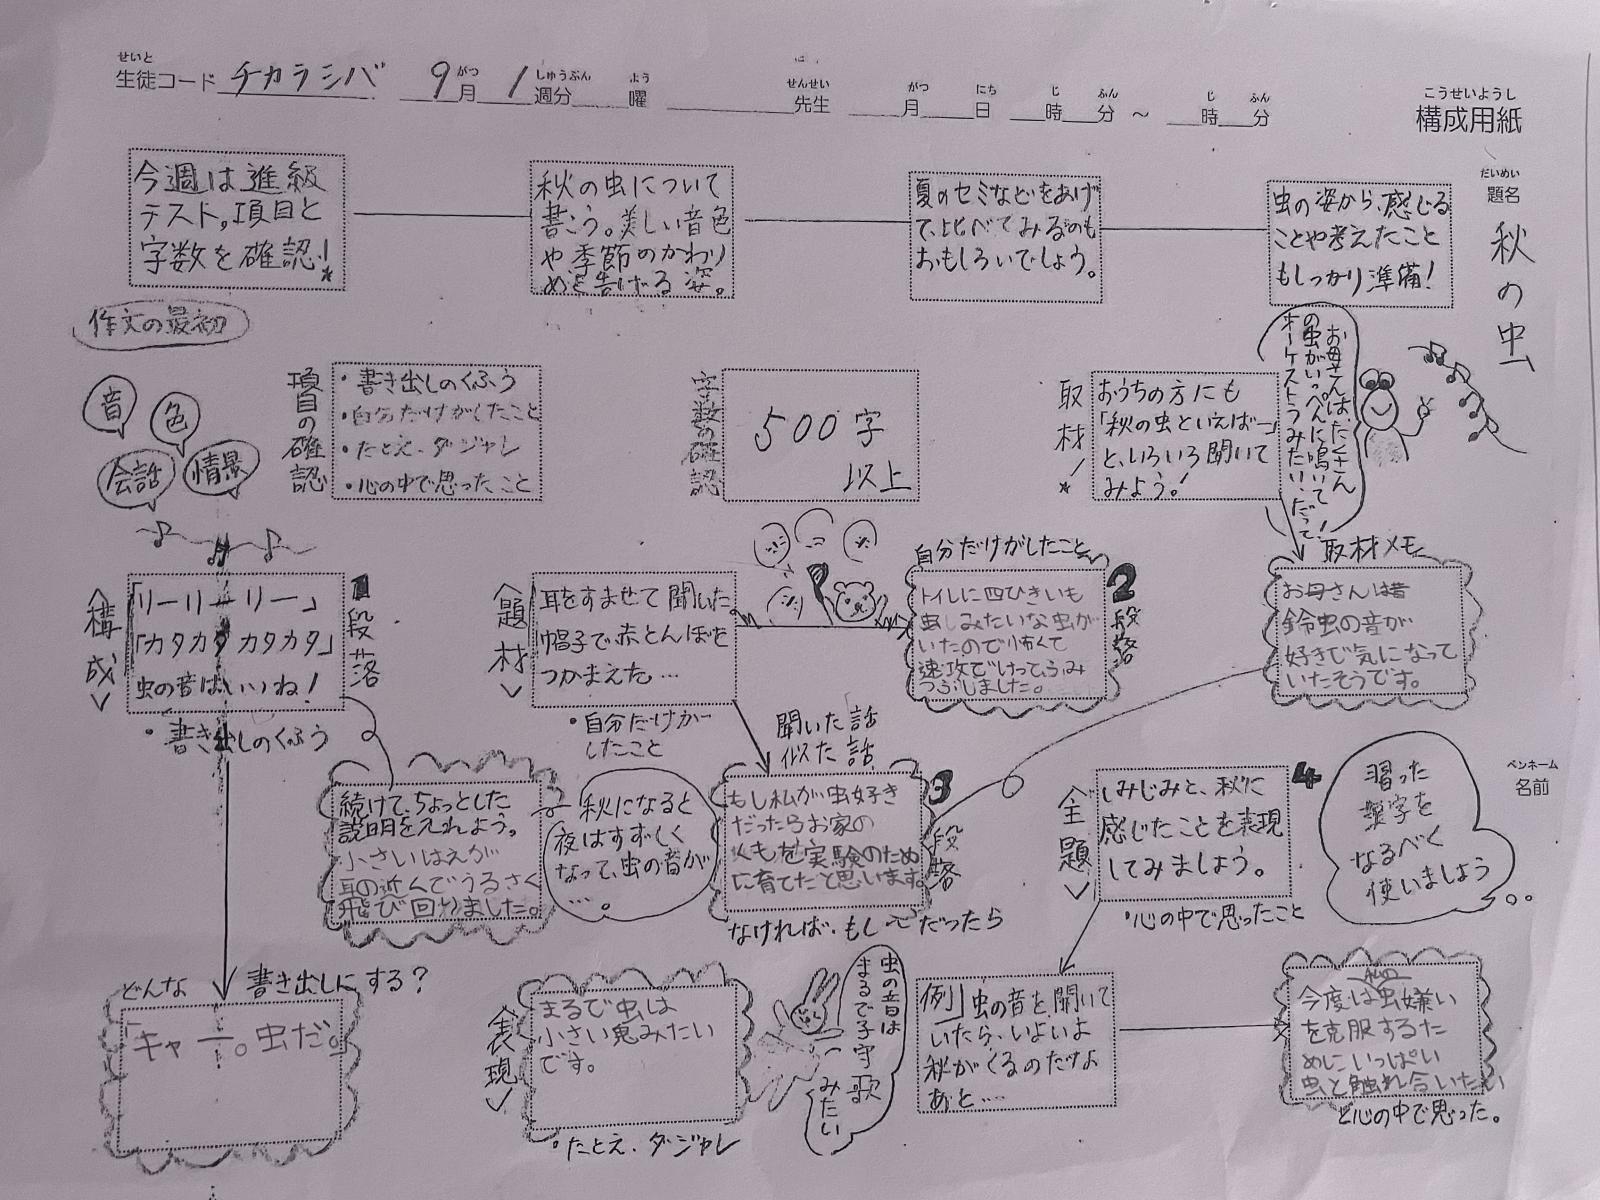 せいと
生徒コード チカラシバ 9月 1週分 曜 先生 月 日 時 分 ～ 時 分
がつ しゅうぶん よう せんせい がつ にち じ ふん じ ふん
こうせいようし
構成用紙
だいめい
題名
秋の虫
今週は進級
テスト。項目と
字数を確認!
秋の虫について
書こう。美しい音色
や季節のかわり
めを告げる姿。
夏のセミなどをあげ
て、比べてみるのも
おもしろいでしょう。
虫の姿から、感じる
ことや考えたこと
もしっかり準備!
作文の最初
音
色
会話
情景
項目の確認
・書き出しのくふう
・自分だけがしたこと
・たとえ、ダジャレ
・心の中で思ったこと
字数の確認
500字
以上
取材!
おうちの方にも
「秋の虫といえばー」
と、いろいろ聞いて
みよう!
お母さんは、たくさん
の虫がいっぺんに鳴いて
オーケストラみたい、だって!
〈構成〉
「リーリーリー」
「カタカタ カタカタ」
虫の音はいいね!
1段落
・書き出しのくふう
〈題材〉
耳をすませて聞いた。
帽子で赤とんぼを
つかまえた…
・自分だけがー
したこと
自分だけがしたこと
トイレに四ひきいも
虫しみたいな虫が
いたので怖くて
速攻でけってふみ
つぶしました。
2段落
取材メモ
お母さんは昔
鈴虫の音が
好きで気になって
いたそうです。
続けて、ちょっとした
説明を入れよう。
小さいはえが
耳の近んでうるさく
飛び回わました。
秋になると
夜はすずしく
なって、虫の音が
…。
聞いた話
似た話
もし私が虫好き
だったらお家の
くもを実験のため
に育てたと思います。
3段落
なければ・もし〜だったら
〈主題〉
しみじみと、秋に
感じたことを表現
してみましょう。
4
・心の中で思ったこと
習った
漢字を
なるべく
使いましょう
ペンネーム
名前
どんな 書き出しにする?
「キャー。虫だ。」
〈表現〉
まるで虫は
小さい鬼みたい
です。
・たとえ、ダジャレ
虫の音は
まるで子守歌
みたい
例」虫の音を聞いて
いたら、いよいよ
秋がくるのだなよ
あと…
今度は虫嫌い
を克服するた
めにいっぱい
虫と触れ合いたい
と心の中で思った。